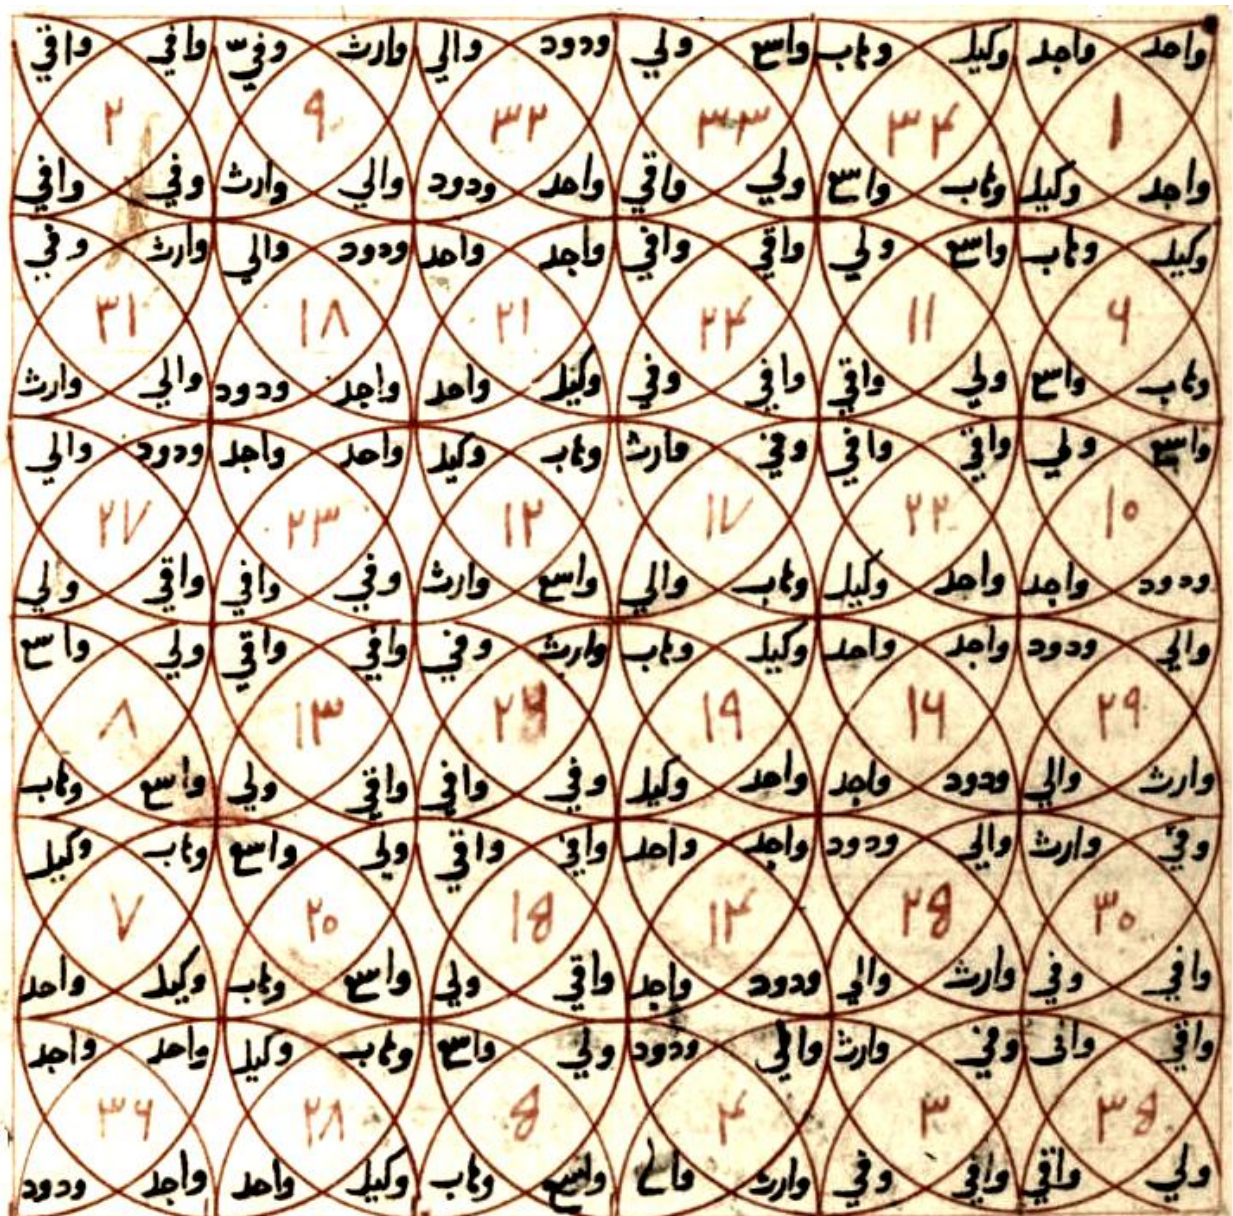 واحد واجد وكيل وهاب واسع ولي ودود والي وارث وفيّ وافي واقي
۱ ۳۴ ۳۳ ۳۲ ۹ ۲
واجد وكيل وهاب واسع ولي واقي واحد ودود والي وارث وفي وافي
وكيل وهاب واسع ولي واقي وافي واجد واحد ودود والي وارث وفي
۶ ۱۱ ۲۴ ۲۱ ۱۸ ۳۱
وهاب واسع ولي واقي وافي وفي وكيل واحد واجد ودود والي وارث
واسع ولي واقي وافي وفي وارث وهاب وكيل واحد واجد ودود والي
۱۰ ۲۲ ۱۷ ۱۲ ۲۳ ۲۷
ودود واجد واحد وكيل وهاب والي واسع وارث وفي وافي واقي ولي
والي ودود واجد واحد وكيل وهاب وارث وفي وافي واقي ولي واسع
۲۹ ۱۶ ۱۹ ۲۶ ۱۳ ۸
وارث والي ودود واجد واحد وكيل وفي وافي واقي ولي واسع وهاب
وفي وارث والي ودود واجد واحد وافي واقي ولي واسع وهاب وكيل
۳۰ ۲۵ ۱۴ ۱۵ ۲۰ ۷
وافي وفي وارث والي ودود واجد واقي ولي واسع وهاب وكيل واحد
واقي وافي وفي وارث والي ودود ولي واسع وهاب وكيل واحد واجد
۳۵ ۳ ۴ ۵ ۲۸ ۳۶
ولي واقي وافي وفي وارث والي واسع وهاب وكيل واحد واجد ودود